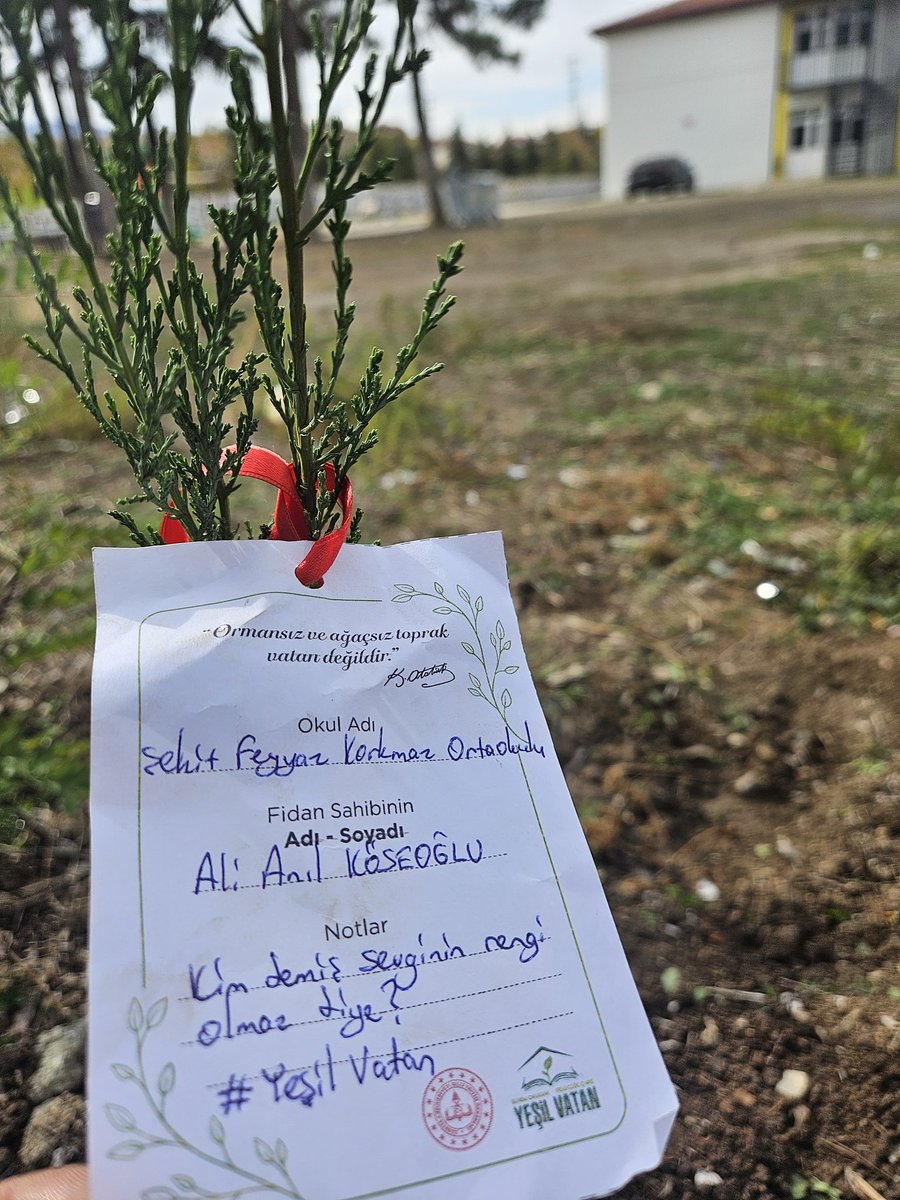 "Ormansız ve ağaçsız toprak
vatan değildir."
K. Atatürk
Okul Adı
Şehit Feyyaz Korkmaz Ortaokulu
Fidan Sahibinin
Adı - Soyadı
Ali Anıl KÖSEOĞLU
Notlar
Kim demiş sevginin rengi
olmaz diye?
#Yeşil Vatan
YEŞİL VATAN